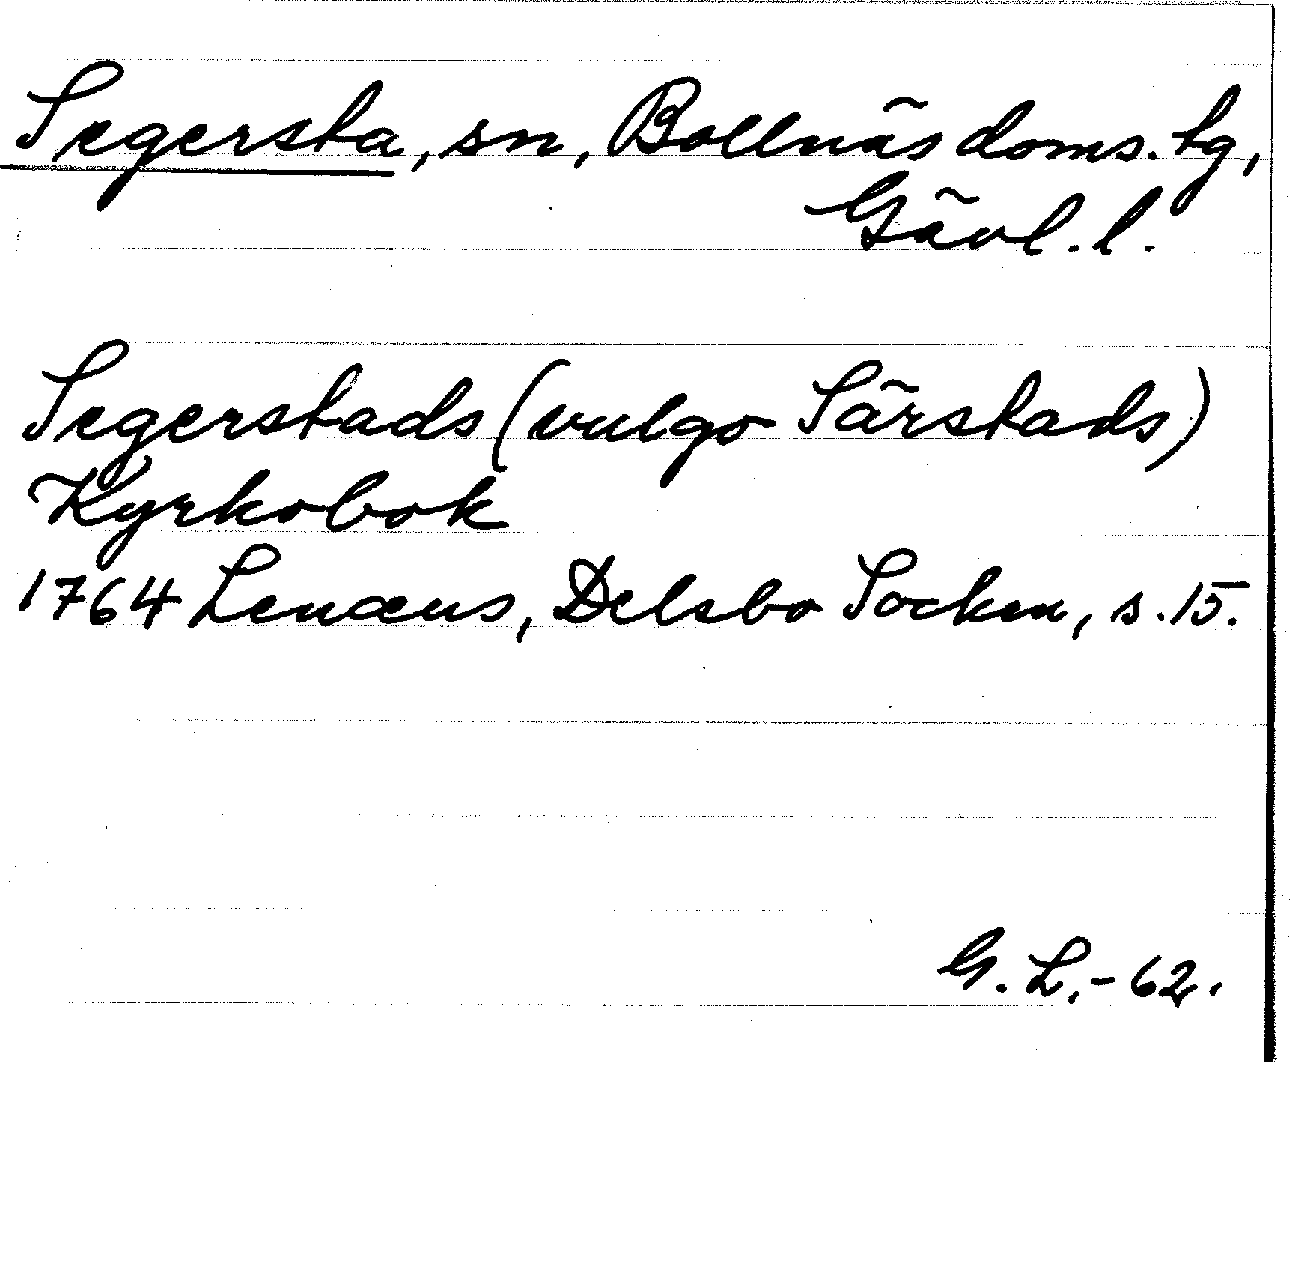 Segersta, sn, Bollnäs doms. tg,
Gävl. l.
Segerstads (vulgo Särstads)
Kyrkobok
1764 Lenæus, Delsbo Socken, s. 15.
G. L. - 62.